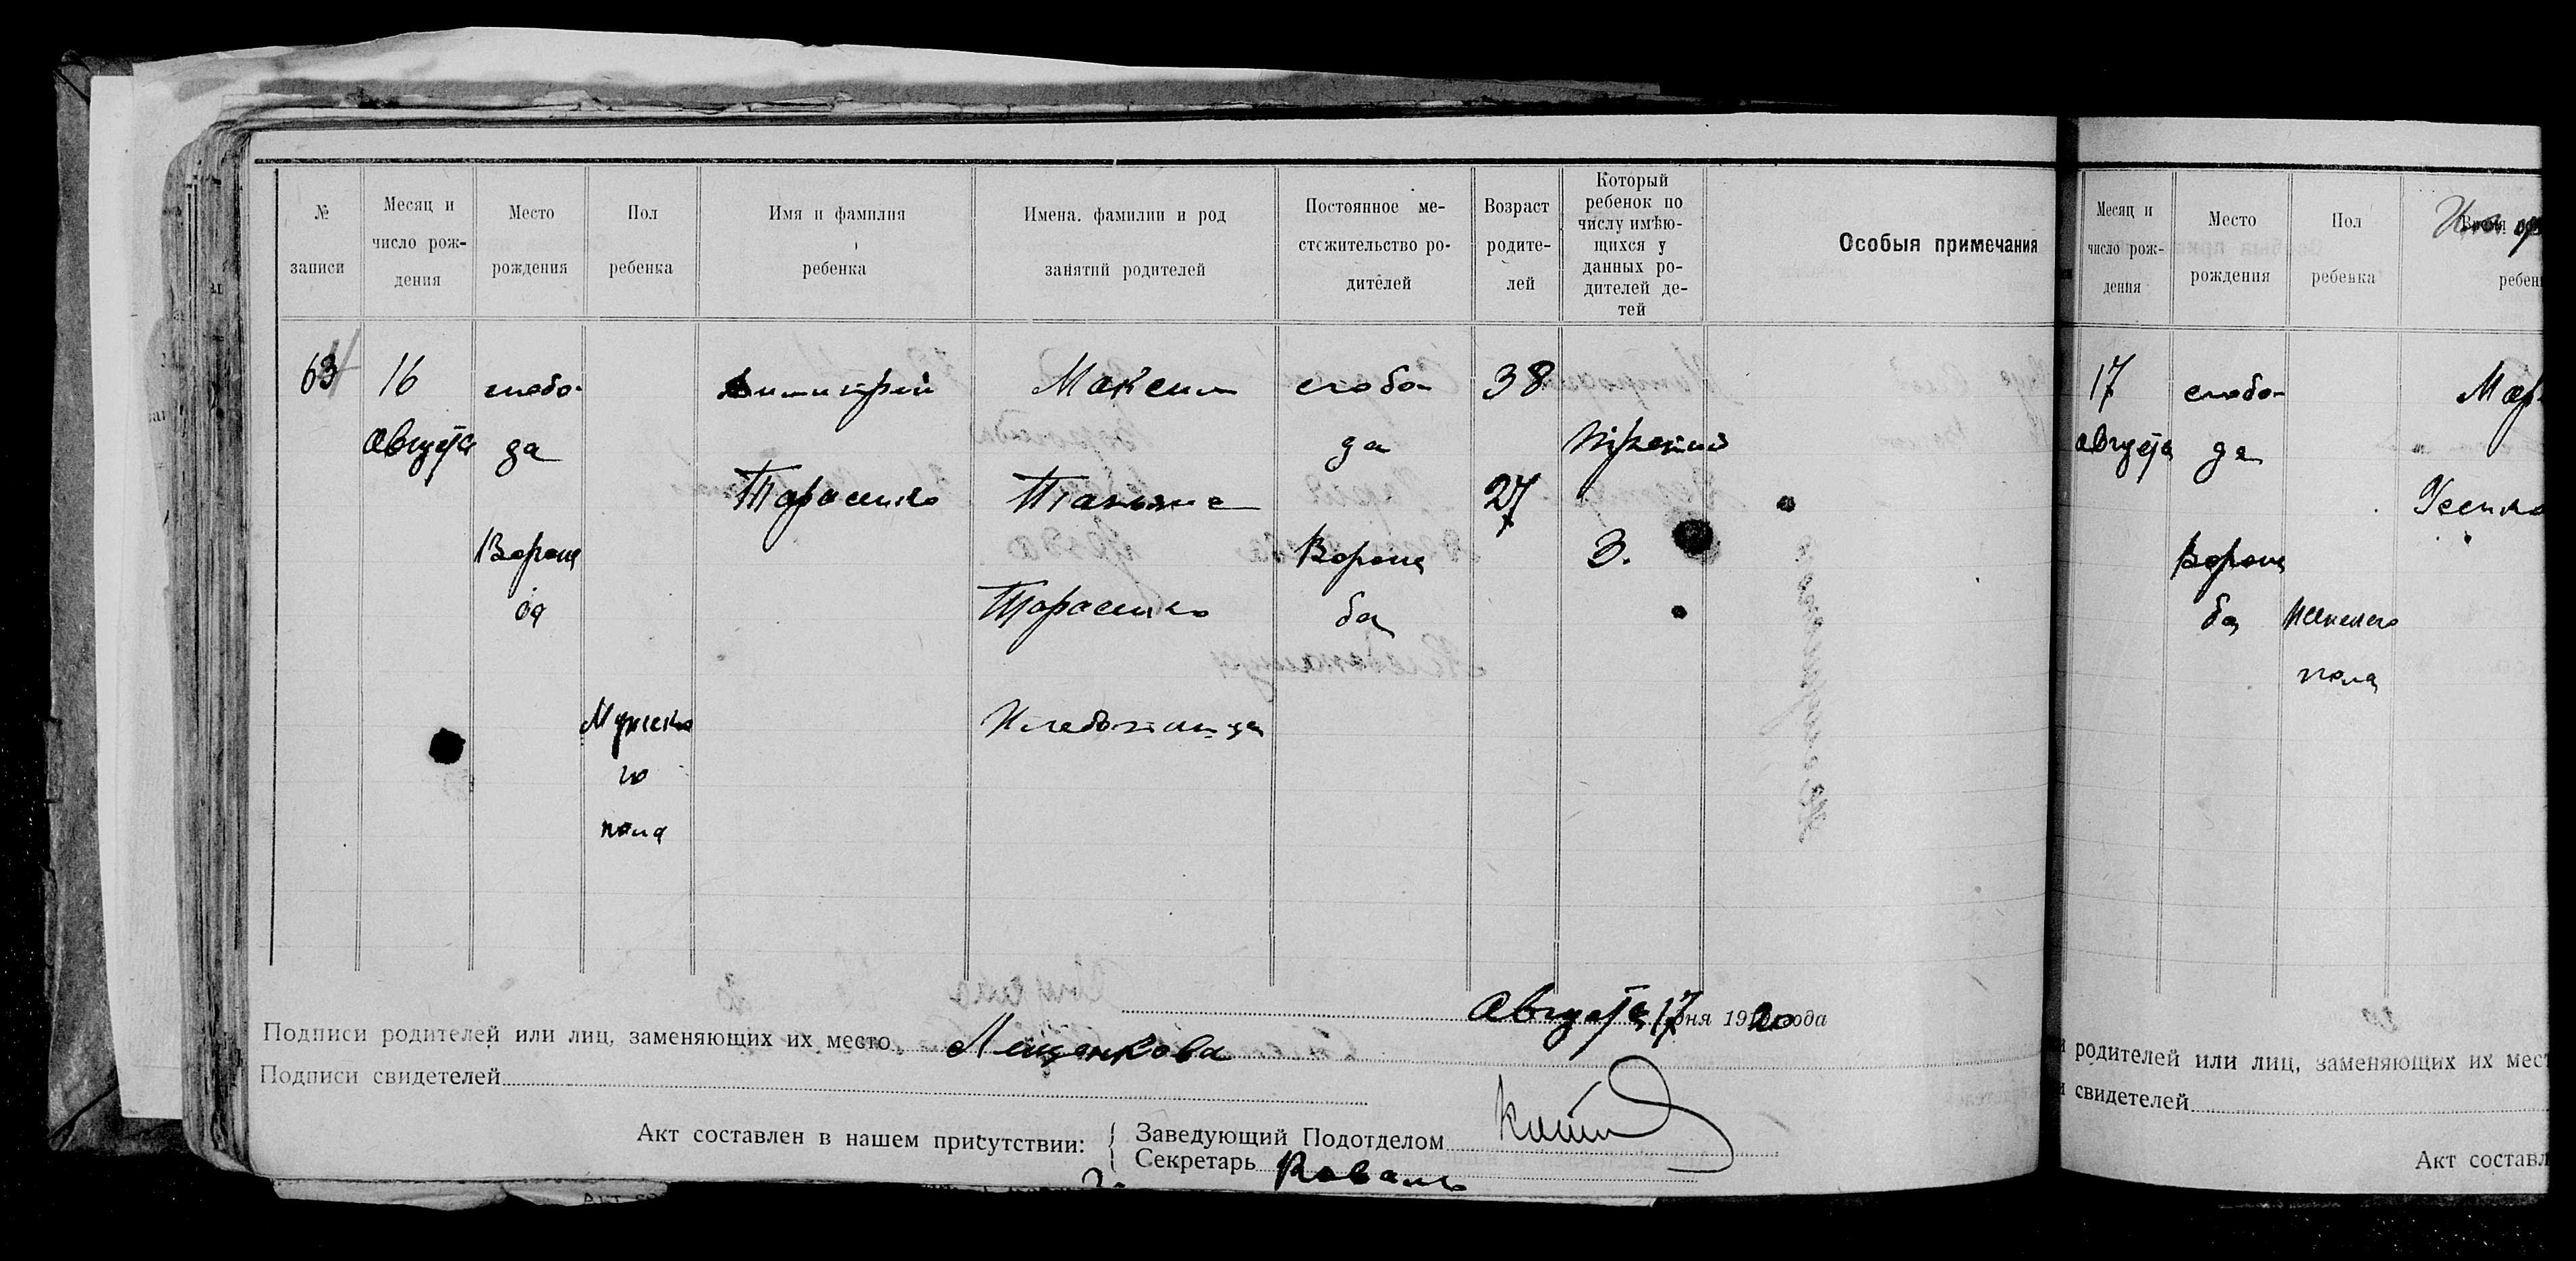 № записи
Месяц и число рождения
Место рождения
Пол ребенка
Имя и фамилия ребенка
Имена. фамилии и род занятий родителей
Постоянное местожительство родителей
Возраст родителей
Который ребенок по числу имѣющихся у данных родителей детей
Особыя примечания
63
16
августа
слобо-
да
Ворона
ба
Мужско
го
пола
Димитрий
Тарасенко
Максим
Татьяна
Тарасенко
Хлебопашцы
слобо-
да
Ворона
ба
38
27
третий
3.
Августа 17 дня 1920 года
Подписи родителей или лиц, заменяющих их место Лещенкова
Подписи свидетелей
Акт составлен в нашем присутствии:
Заведующий Подотделом
Секретарь Коваль
Месяц и число рождения
Место рождения
Пол ребенка
17
августа
слобо-
да
Ворона
ба
женского
пола
родителей или лиц, заменяющих их мес
свидетелей
Акт составл